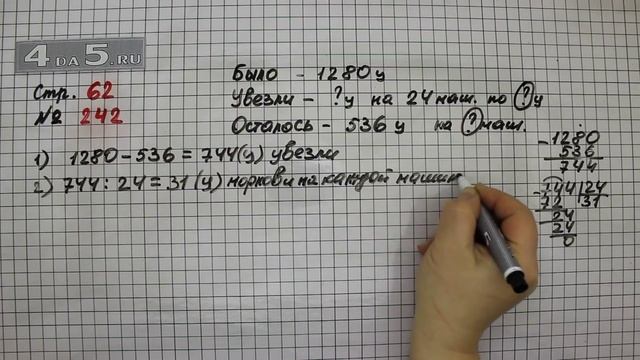 4 DA 5.RU
Стр. 62
№ 242
Было - 1280 ц
Увезли - ? ц на 24 маш. по ? ц
Осталось - 536 ц на ? маш.
1) 1280 - 536 = 744 (ц) увезли
2) 744 : 24 = 31 (ц) моркови на каждой машине
- 1280
536
744
- 744 | 24
72 31
- 24
24
0